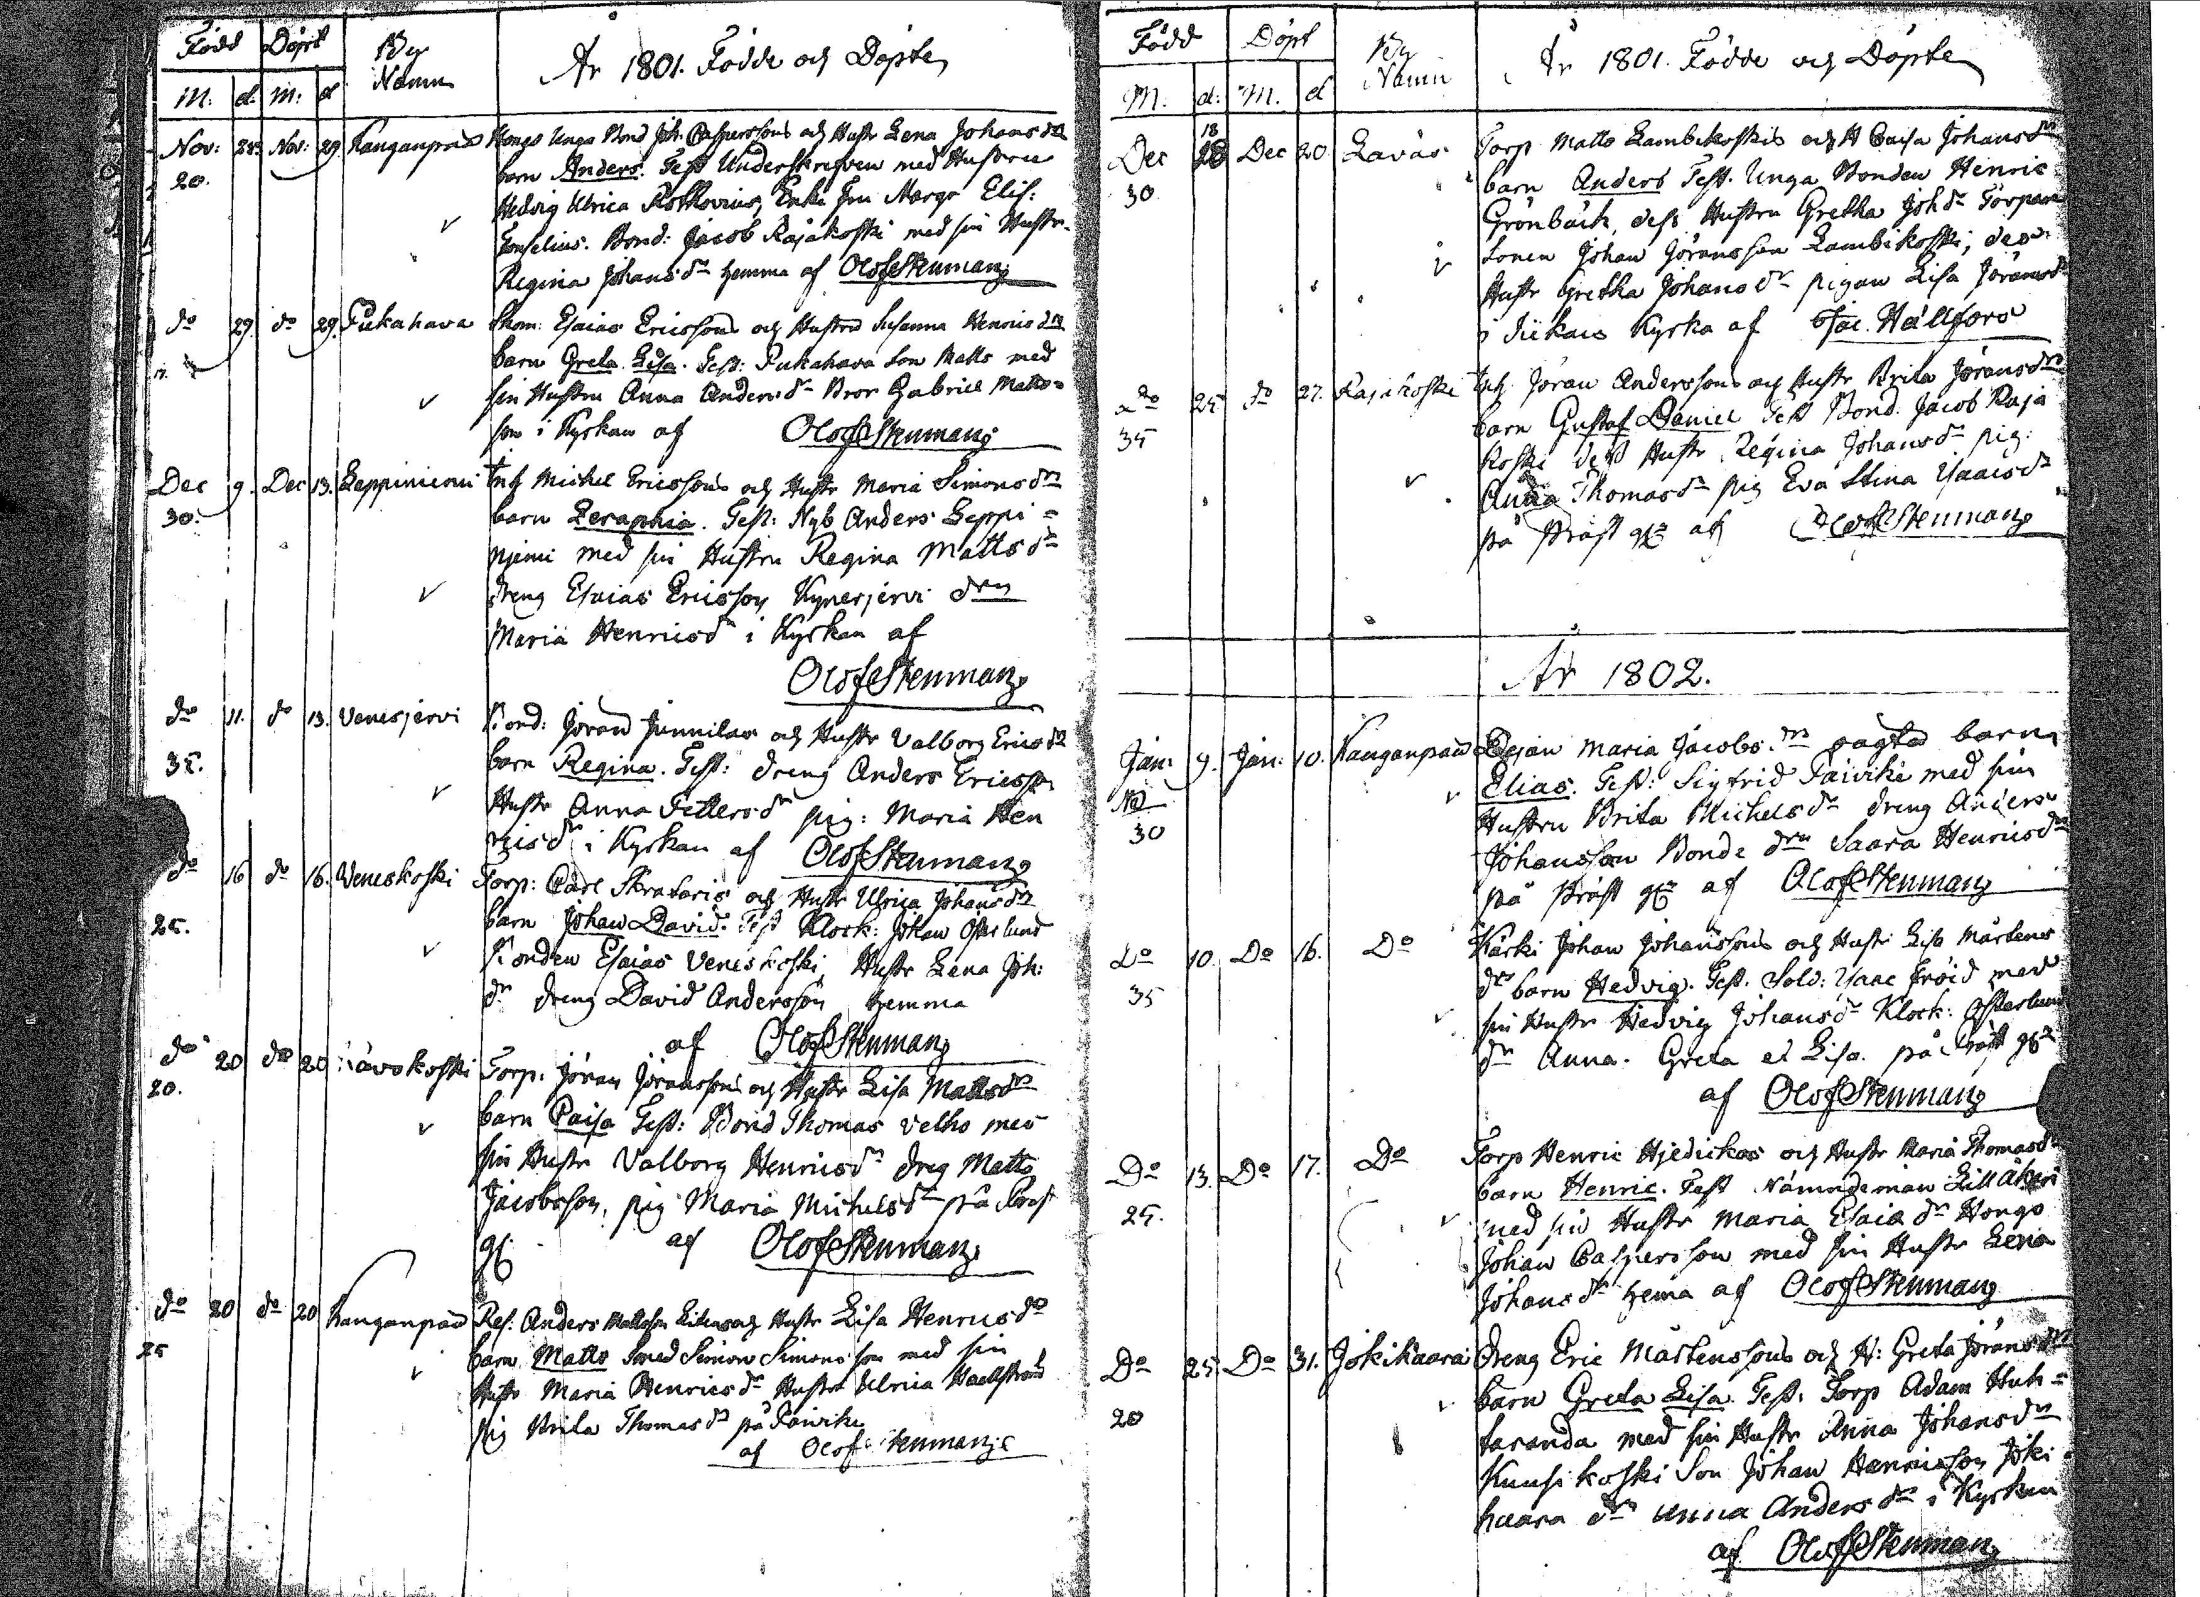 Född Döpt By Namn År 1801. Födde och Döpte
M: d. M: d
Nov: 28. Nov: 29. Kanganpää Hongo Unga Bond Joh: Caspersson och Hustr Lena Johansdr
20. barn Anders. Test Underskrefven med Hustru
Hedvig Ulrica Enke Fru Marg: Elis:
Bond: Jacob Rajakoski med sin Hustr
Regina Johansdr hemma af Olof Stenman
do 29. do 29. Pukahava Skom: Esaias Ericsson och Hustru Susanna Henricsdr
barn Greta Lisa. Test: Pukahava Son Matts med
sin Hustru Anna Andersdr Bror Gabriel Matts-
son i Kyrkan af Olof Stenman
Dec 9. Dec 13. Leppiniemi Inh Michel Ericsson och Hustr Maria Simonsdr
30. barn Zeraphia. Test: Nyb Anders Leppi-
niemi med sin Hustru Regina Mattsdr
dreng Esaias Ericsson Kynesjervi drn
Maria Henricsdr i Kyrkan af
Olof Stenman
do 11. do 13. Venesjervi Bond: Jöran Junnilas och Hustr Valborg Ericsdr
35. barn Regina. Test: dreng Anders Ericsson
Hustr Anna Pettersdr pig: Maria Hen
ricsdr i Kyrkan af Olof Stenman
do 16 do 16. Veneskoski Torp: Carl Skrataris och Hustr Ulrica Johansdr
25. barn Johan David. Test Klock: Johan Österlund
Bonden Esaias Veneskoski, Hustr Lena Joh:
dr dreng David Andersson hemma
af Olof Stenman
do 20 do 20 Torp: Jöran Jöransson och Hustr Lisa Mattsdr
20. barn Caisa Test: Bond Thomas Velho med
sin Hustr Valborg Henricsdr dreg Matts
Jacobsson, pig Maria Michelsdr på Prost
g: af Olof Stenman
do 20 do 20 Kanganpää Res: Anders Mattsson och Hustr Lisa Henricsdr
25 barn Matts Smed Simon Simonsson med sin
Hustr Maria Henricsdr Hustru Ulrica
pig Brita Thomasdr på Päivike
af Olof Stenman
Född Döpt By Namn År 1801. Födde och Döpte
M. d: M. d
Dec 18 Dec 20 Laväs Torp. Matts Lambikoskis och H Caisa Johansdr
30 barn Anders Test. Unga Bonden Henric
Grönback, dess Hustru Gretha Johdr Torpare
Sonen Johan Jöransson Lambikoski, dess
Hustr Gretha Johansdr pigan Lisa Jöransdr
i Iickais Kyrka af Isac. Hällfors
do 25 do 27. Rajakoski Inh. Jöran Andersson och Hustr Brita Jöransdr
35 barn Gustaf Daniel Test Bond. Jacob Raja
koski dess Hustr Regina Johansdr pig:
Anna Thomasdr pig Eva Stina Isaacsdr
på Pråst g: af Olof Stenman
År 1802.
Jan: 9. Jan: 10. Kanganpää Pejan Maria Jacobs.drs oägta barn
30 Elias. Test: Sigfrid Päivike med sin
Hustru Brita Michelsdr dreng Anders
Johansson Bonde drn Saara Henricsdr
på Pråst g: af Olof Stenman
Do 10. Do 16. Do Kärki Johan Johansson och Hustr Lisa Mårtens
35 drs barn Hedvig. Test. Sold: Isaac Fröid med
sin Hustr Hedvig Johansdr Klock: Österlund
dr Anna. Greta et Lisa. på Pråst g:
af Olof Stenman
Do 13. Do 17. Do Torp Henric Hjedickas och Hustr Maria Thomasdr
25. barn Henric. Test Nämndeman Lillåkeri
med sin Hustr Maria Esaiædr Hongo
Johan Caspersson med sin Hustr Lena
Johansdr hema af Olof Stenman
Do 25. Do 31. Jokikaara Dreng Eric Mårtensson och H: Greta Jöransdr
20 barn Greta Lisa. Test: Torp Adam Huh-
taranda med sin Hustr Anna Johansdr
Kuusikoski Son Johan Henricsson Joki-
kaara drn Anna Andersdr i Kyrkan
af Olof Stenman